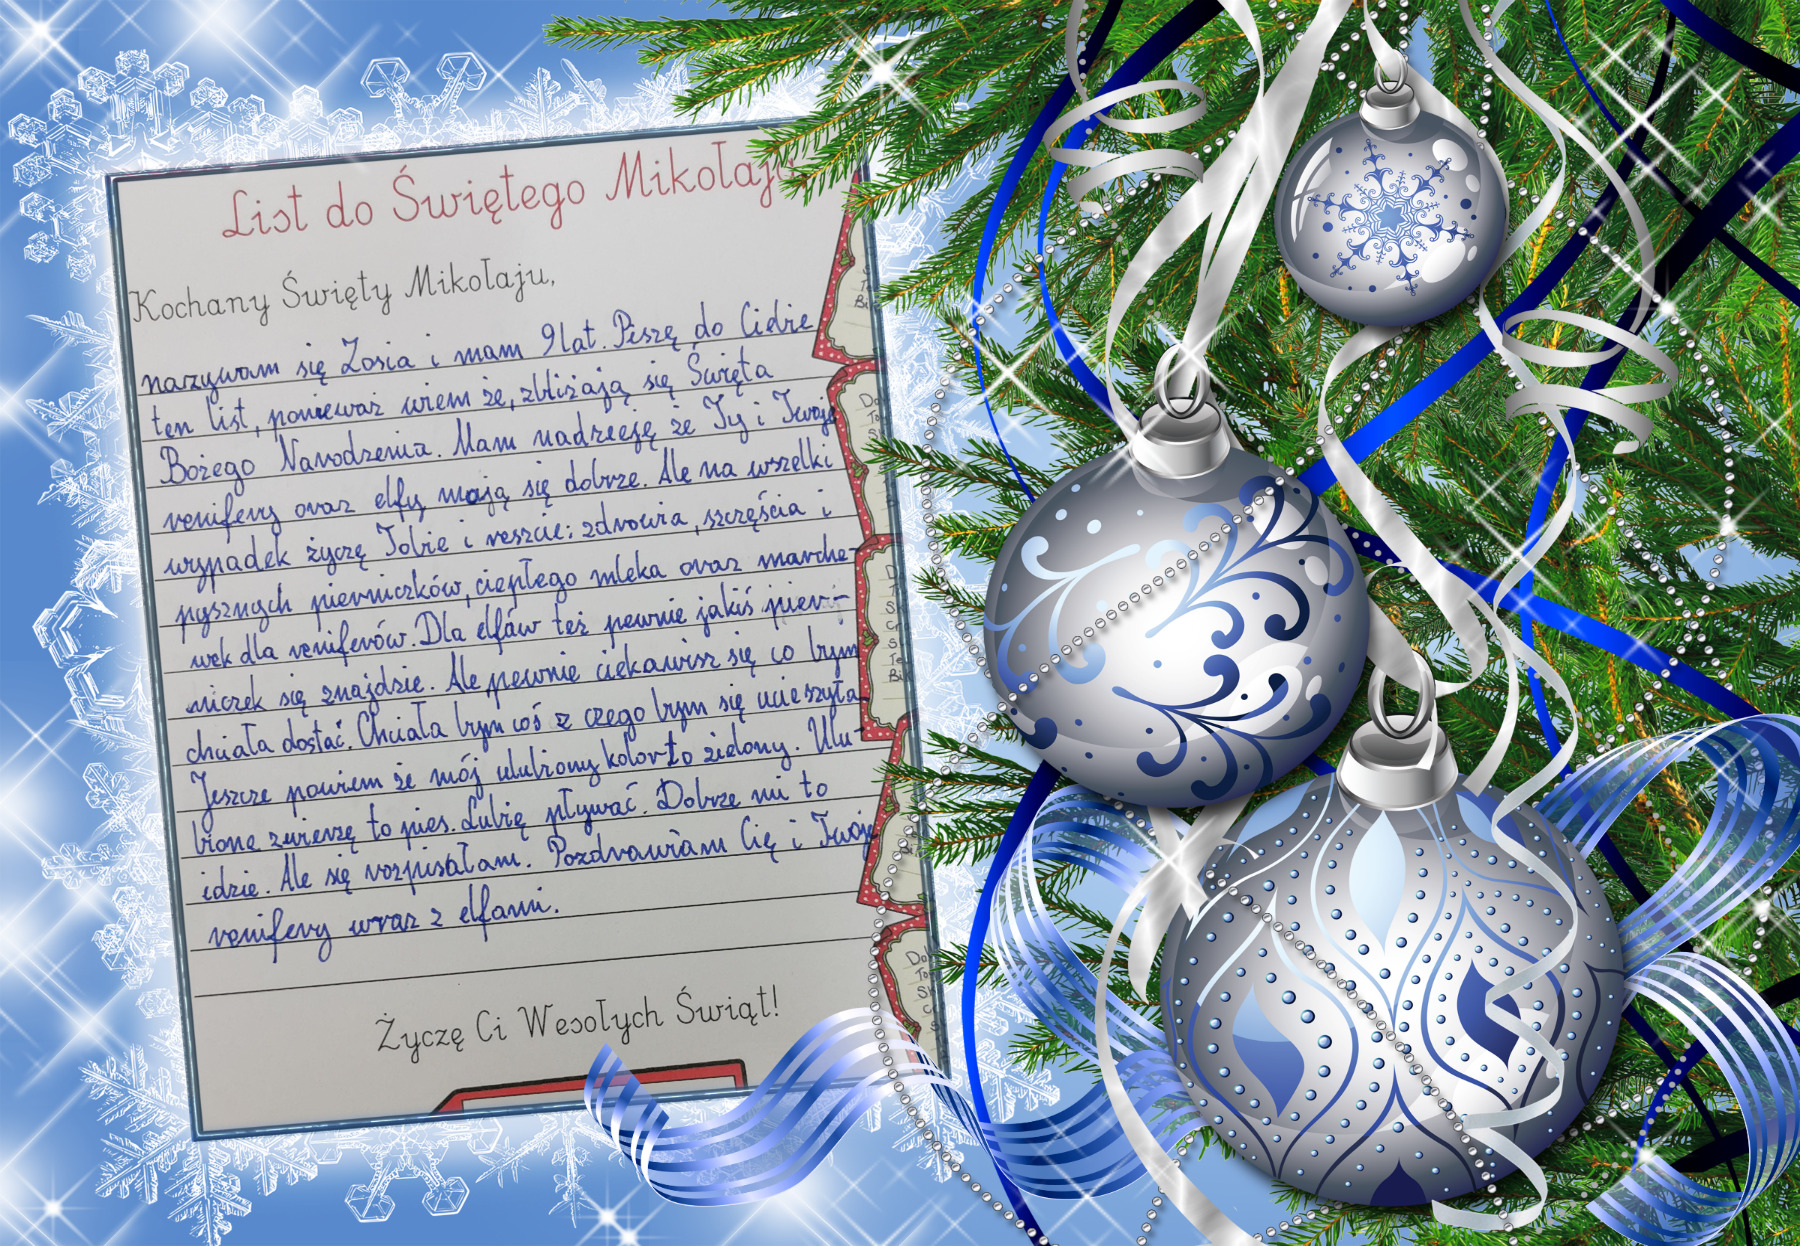 List do Świętego Mikołaja
Kochany Święty Mikołaju,
nazywam się Zosia i mam 9 lat. Piszę do Ciebie
ten list, ponieważ wiem że, zbliżają się Święta
Bożego Narodzenia. Mam nadzieję że Ty i Twoje
renifery oraz elfy mają się dobrze. Ale na wszelki
wypadek życzę Tobie i reszcie: zdrowia, szczęścia i
pysznych pierniczków, ciepłego mleka oraz marche-
wek dla reniferów. Dla elfów też pewnie jakiś pier-
niczek się znajdzie. Ale pewnie ciekawisz się co bym
chciała dostać. Chciała bym coś z czego bym się ucieszyła.
Jeszcze powiem że mój ulubiony kolor to zielony. Ulu-
bione zwierzę to pies. Lubię pływać. Dobrze mi to
idzie. Ale się rozpisałam. Pozdrawiam Cię i Twoje
renifery wraz z elfami.
Życzę Ci Wesołych Świąt!